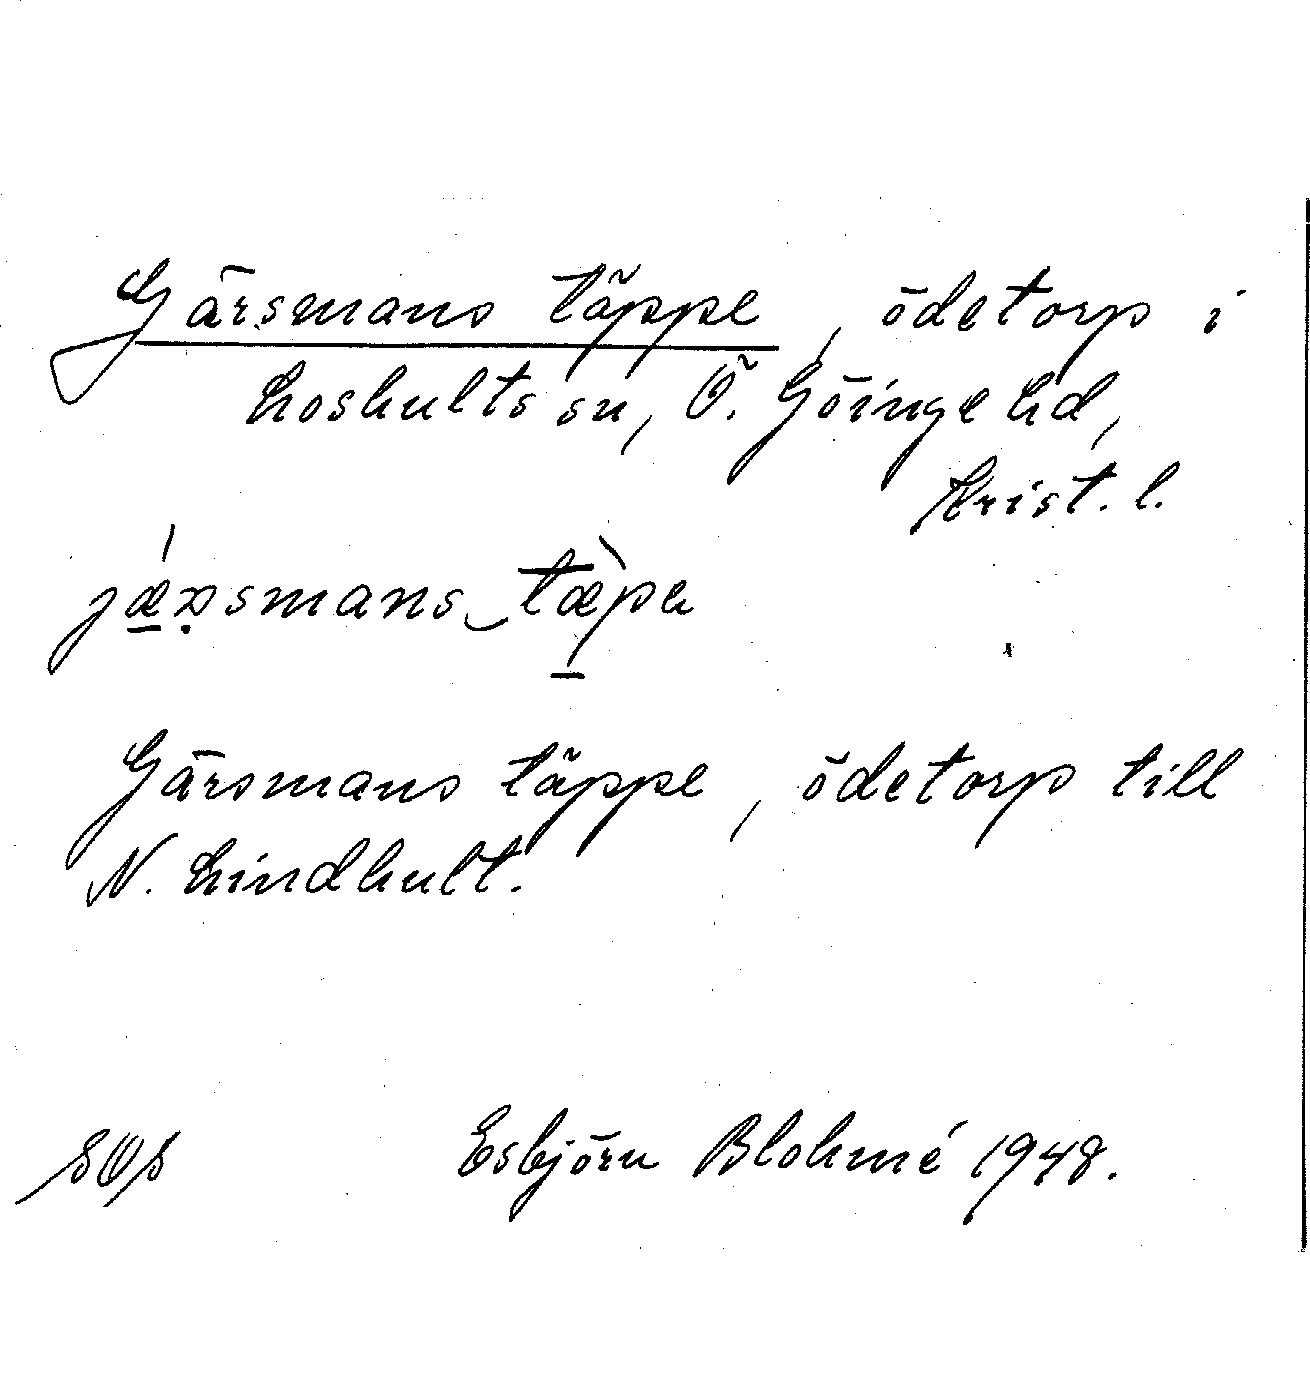 Gärsmans täppe, ödetorp i
Loshults sn, Ö. Göinge hd,
Krist. l.
jǽrsmans‿tæ̀pa
Gärsmans täppe, ödetorp till
N. Lindhult.
Esbjörn Blohmé 1948.